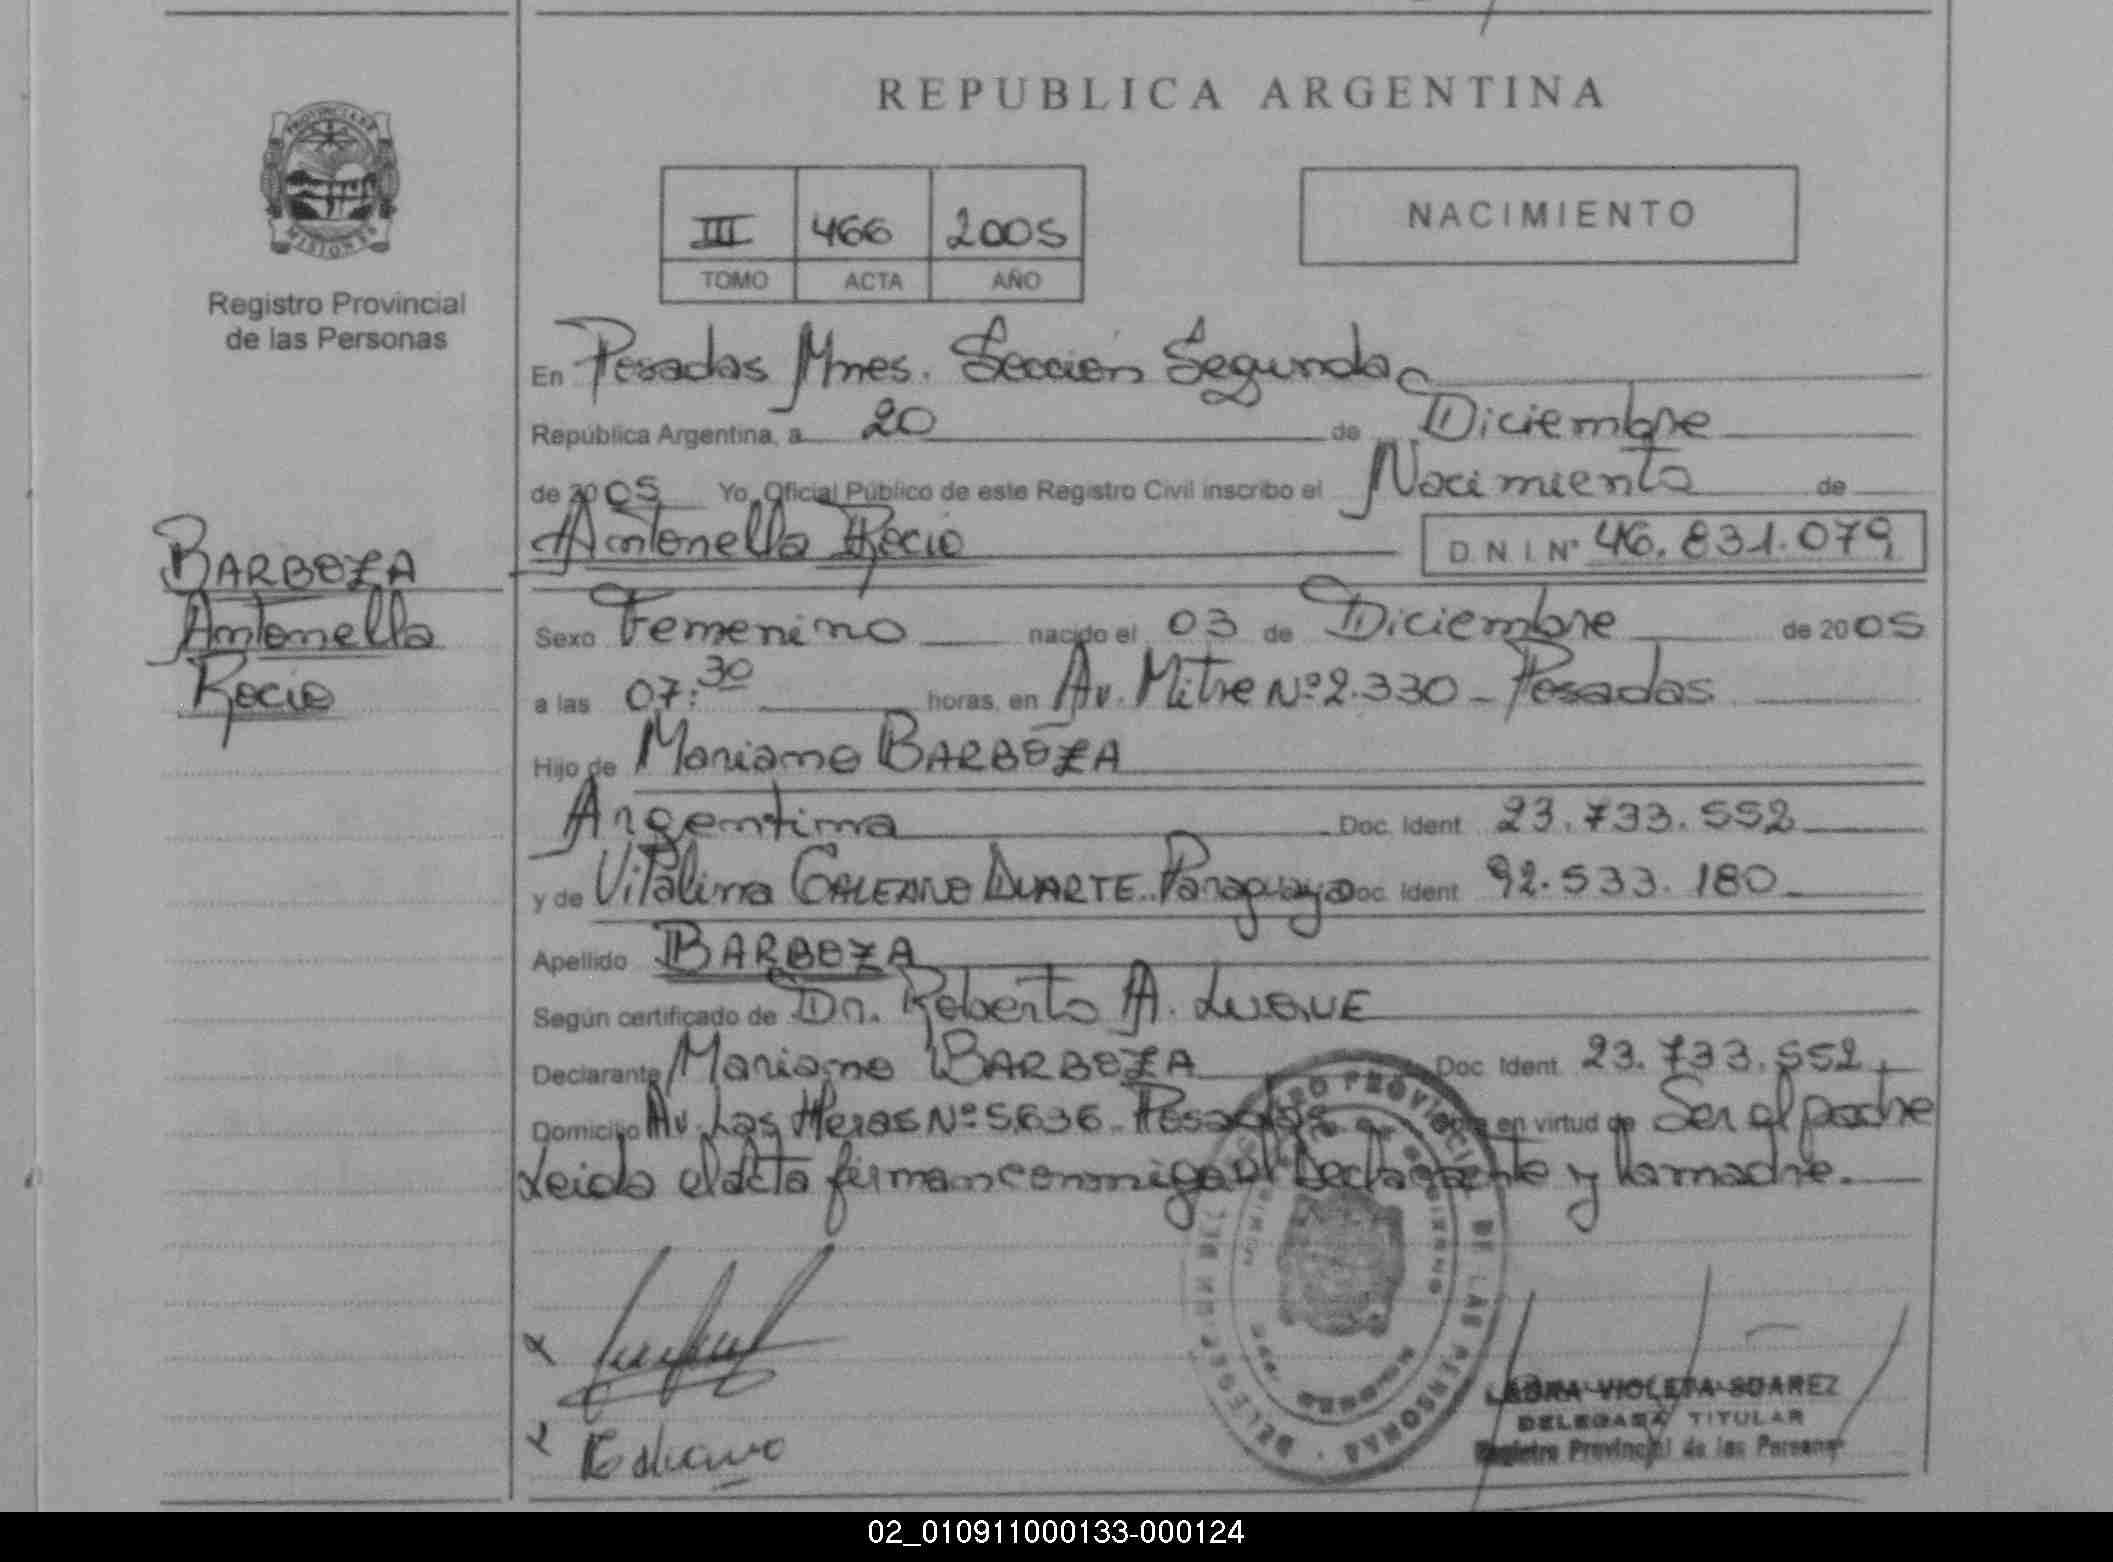 REPUBLICA ARGENTINA
III 466 2005
TOMO ACTA AÑO
NACIMIENTO
PROVINCIA DE
MISIONES
Registro Provincial
de las Personas
BARBOZA
Antonella
Rocio
En Posadas Mnes. Sección Segunda
República Argentina, a 20 de Diciembre
de 2005 Yo, Oficial Público de este Registro Civil inscribo el Nacimiento de
Antonella Rocio D.N.I. Nº 46.831.079
Sexo Femenino nacido el 03 de Diciembre de 2005
a las 07:30 horas, en Av. Mitre Nº 2.330 - Posadas
Hijo de Mariano BARBOZA
Argentina Doc. Ident 23.733.552
y de Vitalina GALEANO DUARTE. Paraguaya Doc. Ident 92.533.180
Apellido BARBOZA
Según certificado de Dr. Roberto A. LUQUE
Declarante Mariano BARBOZA Doc. Ident. 23.733.552
Domicilio Av. Las Heras Nº 5636 - Posadas en virtud de Ser el padre
Leida el acta firman conmigo el Declarante y la madre.
REGISTRO PROVINCIAL DE LAS PERSONAS
LAURA VIOLETA SUAREZ
DELEGADA TITULAR
Registro Provincial de las Personas
02_010911000133-000124